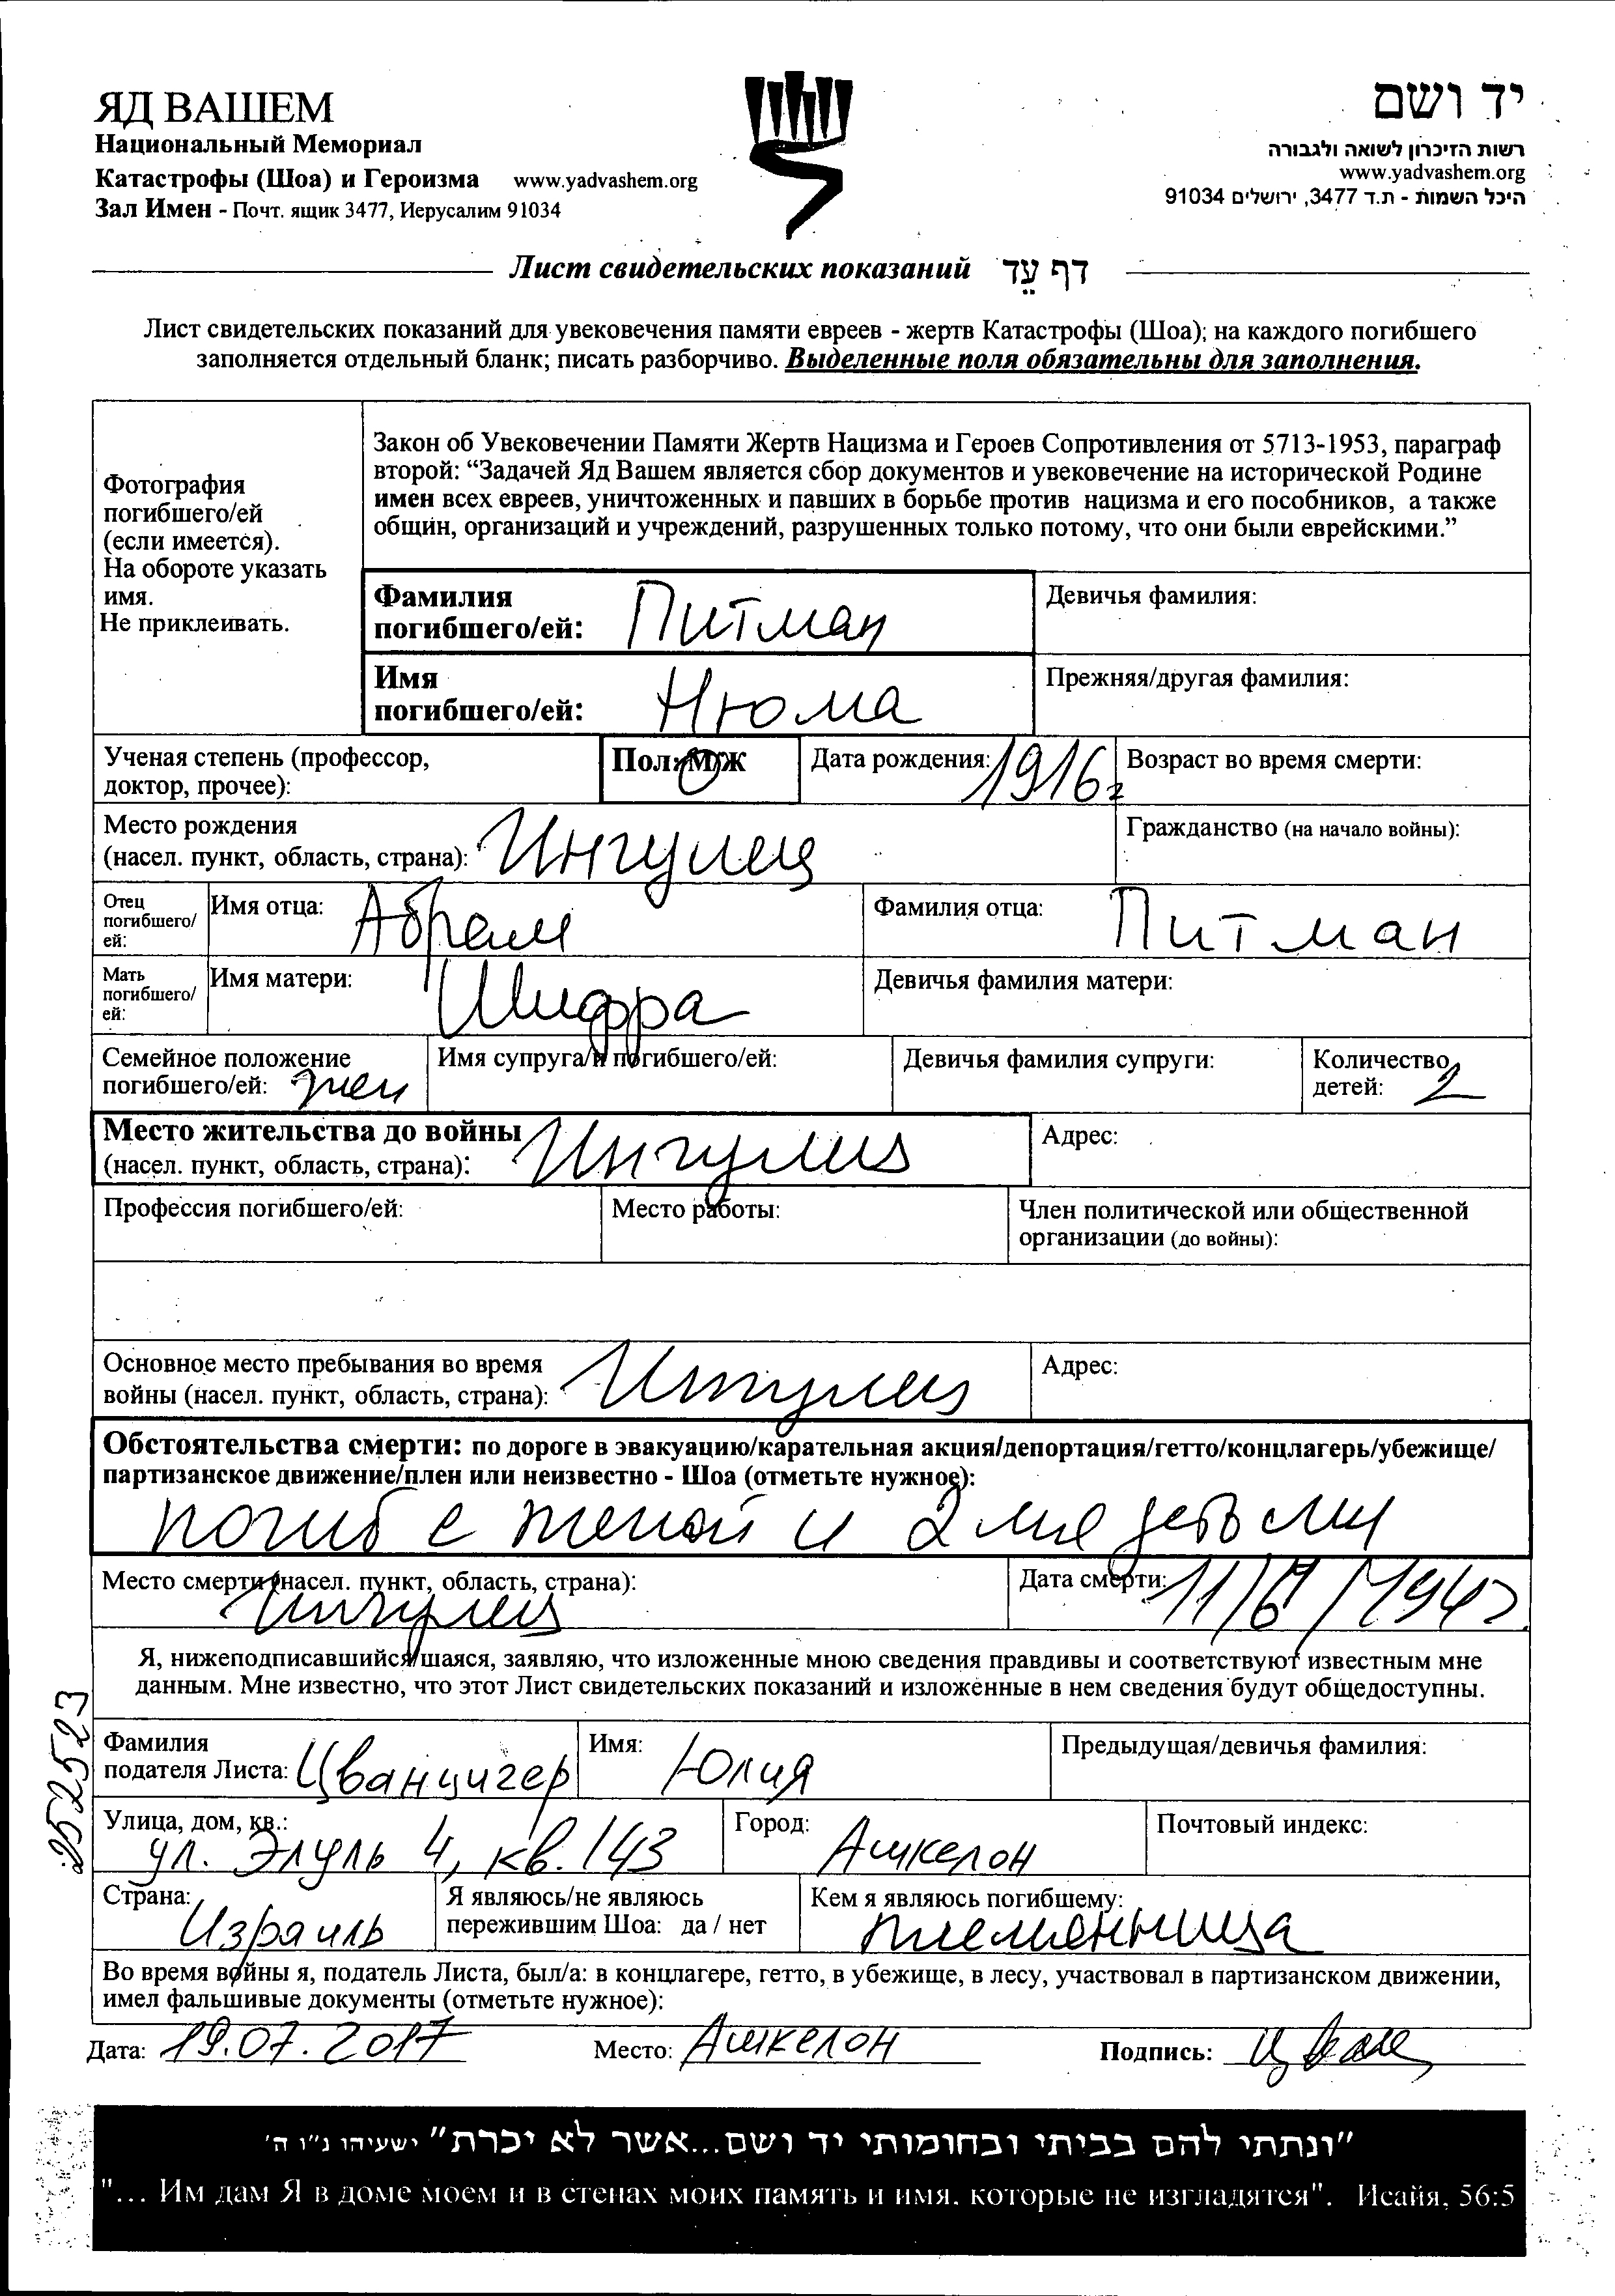 ЯД ВАШЕМ
Национальный Мемориал
Катастрофы (Шоа) и Героизма www.yadvashem.org
Зал Имен - Почт. ящик 3477, Иерусалим 91034
יד ושם
רשות הזיכרון לשואה ולגבורה
www.yadvashem.org
היכל השמות - ת.ד 3477, ירושלים 91034
Лист свидетельских показаний דף עֵד
Лист свидетельских показаний для увековечения памяти евреев - жертв Катастрофы (Шоа); на каждого погибшего
заполняется отдельный бланк; писать разборчиво. Выделенные поля обязательны для заполнения.
Фотография
погибшего/ей
(если имеется).
На обороте указать
имя.
Не приклеивать.
Закон об Увековечении Памяти Жертв Нацизма и Героев Сопротивления от 5713-1953, параграф
второй: “Задачей Яд Вашем является сбор документов и увековечение на исторической Родине
имен всех евреев, уничтоженных и павших в борьбе против нацизма и его пособников, а также
общин, организаций и учреждений, разрушенных только потому, что они были еврейскими.”
Фамилия
погибшего/ей: Питман
Девичья фамилия:
Имя
погибшего/ей: Нюма
Прежняя/другая фамилия:
Ученая степень (профессор,
доктор, прочее):
Пол: М/Ж
Дата рождения: 1916г
Возраст во время смерти:
Место рождения
(насел. пункт, область, страна): Ингулец
Гражданство (на начало войны):
Отец
погибшего/
ей:
Имя отца: Абрам
Фамилия отца: Питман
Мать
погибшего/
ей:
Имя матери: Шифра
Девичья фамилия матери:
Семейное положение
погибшего/ей: жен
Имя супруга/и погибшего/ей:
Девичья фамилия супруги:
Количество
детей: 2
Место жительства до войны
(насел. пункт, область, страна): Ингулец
Адрес:
Профессия погибшего/ей:
Место работы:
Член политической или общественной
организации (до войны):
Основное место пребывания во время
войны (насел. пункт, область, страна): Ингулец
Адрес:
Обстоятельства смерти: по дороге в эвакуацию/карательная акция/депортация/гетто/концлагерь/убежище/
партизанское движение/плен или неизвестно - Шоа (отметьте нужное):
погиб с женой и 2 мя детьми
Место смерти (насел. пункт, область, страна):
Ингулец
Дата смерти:
Я, нижеподписавшийся/шаяся, заявляю, что изложенные мною сведения правдивы и соответствуют известным мне
данным. Мне известно, что этот Лист свидетельских показаний и изложенные в нем сведения будут общедоступны.
252523
Фамилия
подателя Листа: Цванцигер
Имя: Юлия
Предыдущая/девичья фамилия:
Улица, дом, кв.:
ул. Элуль 4, кв. 143
Город: Ашкелон
Почтовый индекс:
Страна:
Израиль
Я являюсь/не являюсь
пережившим Шоа: да / нет
Кем я являюсь погибшему:
племянница
Во время войны я, податель Листа, был/а: в концлагере, гетто, в убежище, в лесу, участвовал в партизанском движении,
имел фальшивые документы (отметьте нужное):
Дата: 19.07.2017 Место: Ашкелон Подпись:
"ונתתי להם בביתי ובחומותי יד ושם...אשר לא יכרת" ישעיהו נ"ו ה'
"... Им дам Я в доме моем и в стенах моих память и имя. которые не изгладятся". Исайя, 56:5